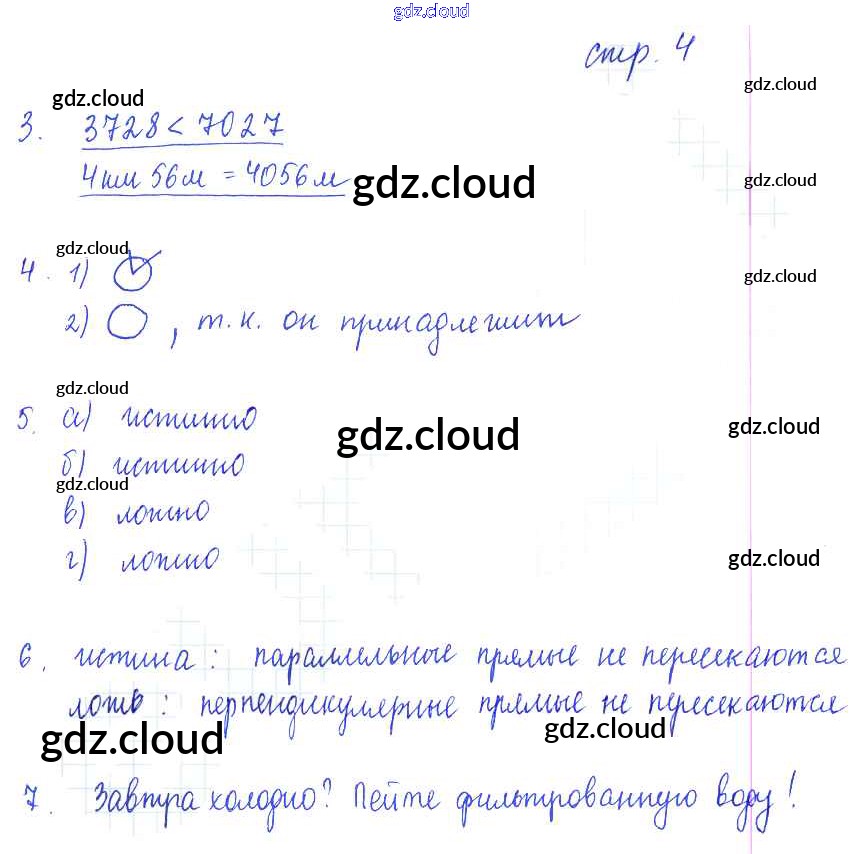 gdz.cloud
стр. 4
gdz.cloud
gdz.cloud
3. 3728 < 7027
4км 56м = 4056м
gdz.cloud
gdz.cloud
gdz.cloud
gdz.cloud
4. 1)
2) , т.к. он принадлежит
gdz.cloud
5. а) истинно
gdz.cloud
gdz.cloud
б) истинно
gdz.cloud
в) ложно
г) ложно
gdz.cloud
6. истина: параллельные прямые не пересекаются
ложь: перпендикулярные прямые не пересекаются
gdz.cloud
gdz.cloud
7. Завтра холодно? Пейте фильтрованную воду!